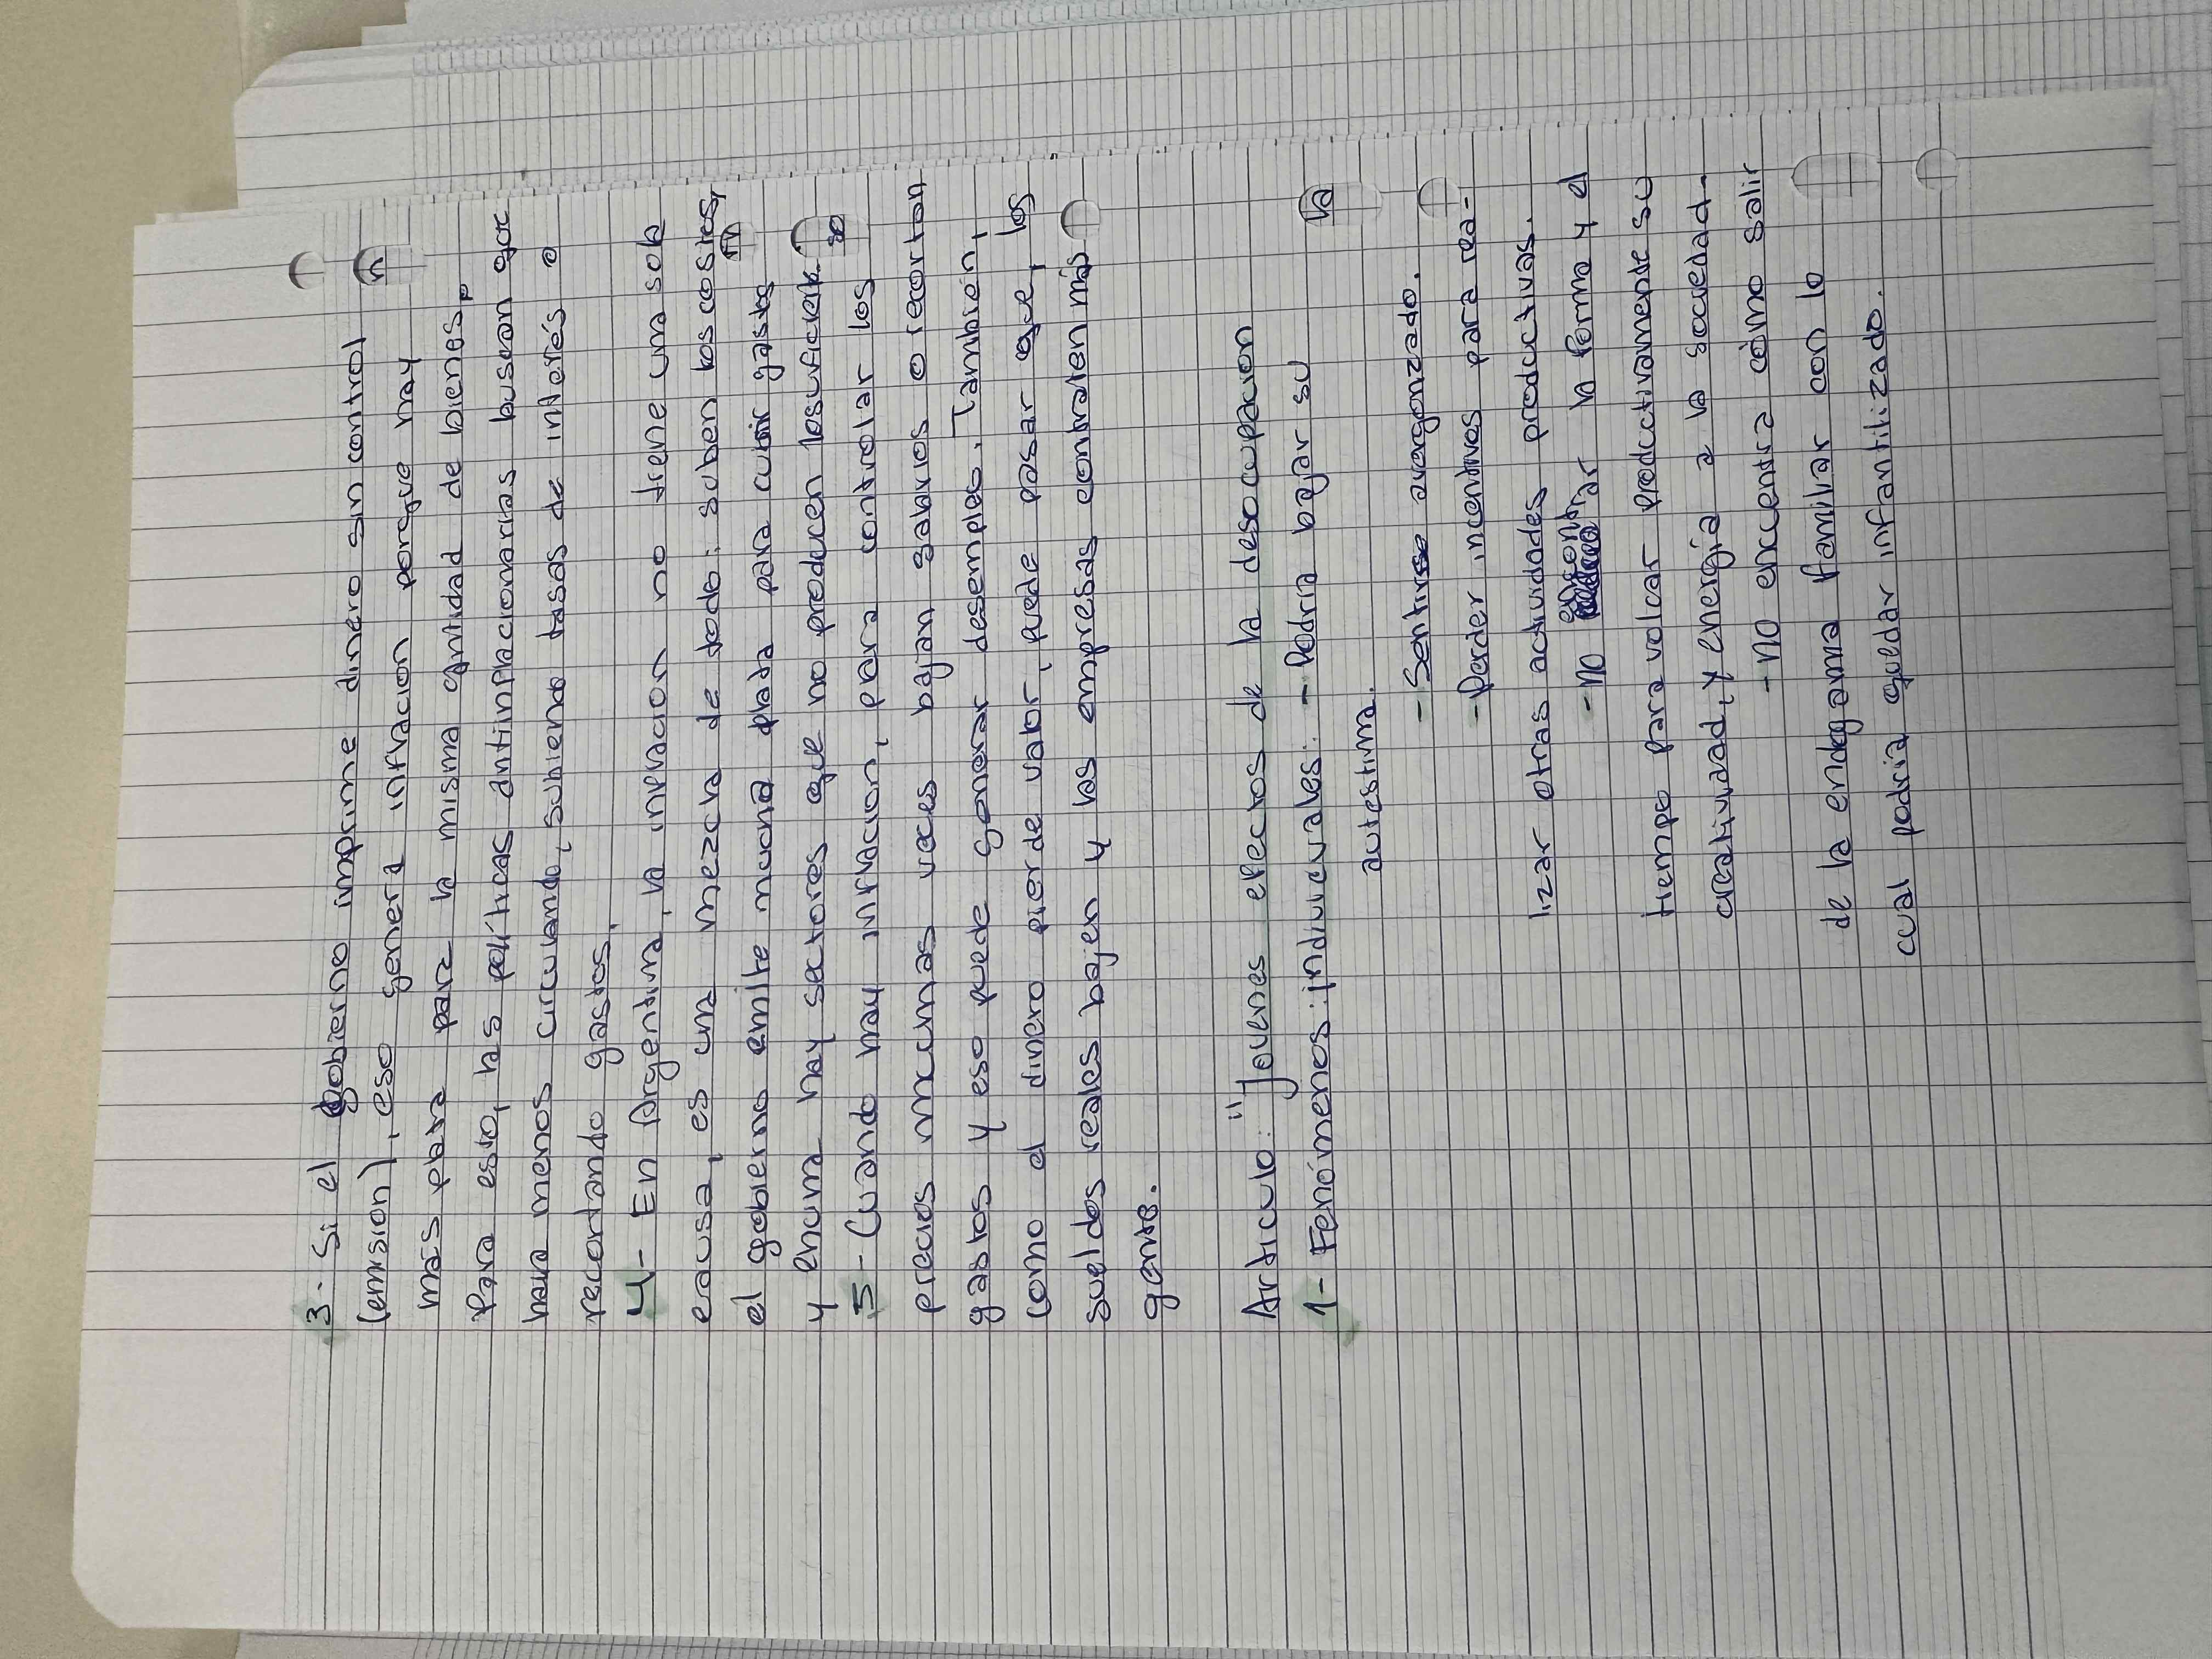 3- Si el gobierno imprime dinero sin control
(emision), eso genera inflacion porque hay
más plata para la misma cantidad de bienes.
Para esto, las políticas antiinflacionarias buscan que
haya menos circulando, subiendo tasas de interés o
recortando gastos.
4- En Argentina, la inflacion no tiene una sola
causa, es una mezcla de todo: suben los costos,
el gobierno emite mucha plata para cubrir gastos
y encima hay sectores que no producen lo suficiente.
5- Cuando hay inflacion, para controlar los
precios muchas veces bajan salarios o recortan
gastos y eso puede generar desempleo. Tambión,
como el dinero pierde valor, puede pasar que, los
sueldos reales bajen y las empresas contraten más
gente.
Articulo: "Jovenes efectos de la desocupacion
1- Fenómenos: individuales: - Podria bajar su
autestima.
- Sentirse avergonzado.
- Perder incentivos para rea-
lizar otras actividades productivas.
- No encontrar la forma y el
tiempo para volcar productivamente su
creatividad, y energía a la sociedad.
- No encuentra cómo salir
de la endogamia familiar con lo
cual podria quedar infantilizado.